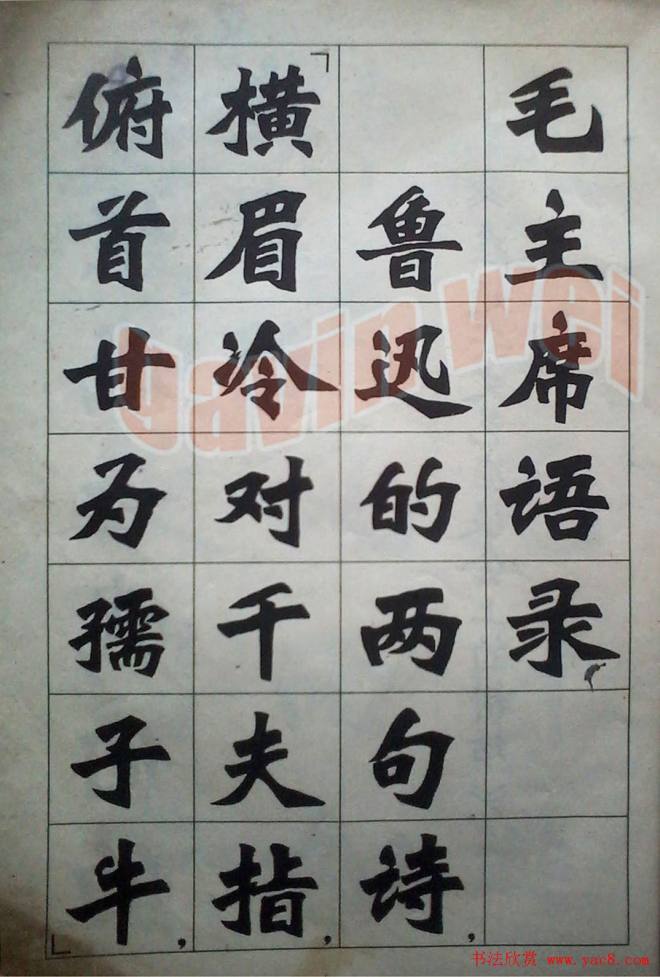 毛主席语录
鲁迅的两句诗，
「横眉冷对千夫指，
俯首甘为孺子牛」，
Gavin wei
书法欣赏 www.yac8.com